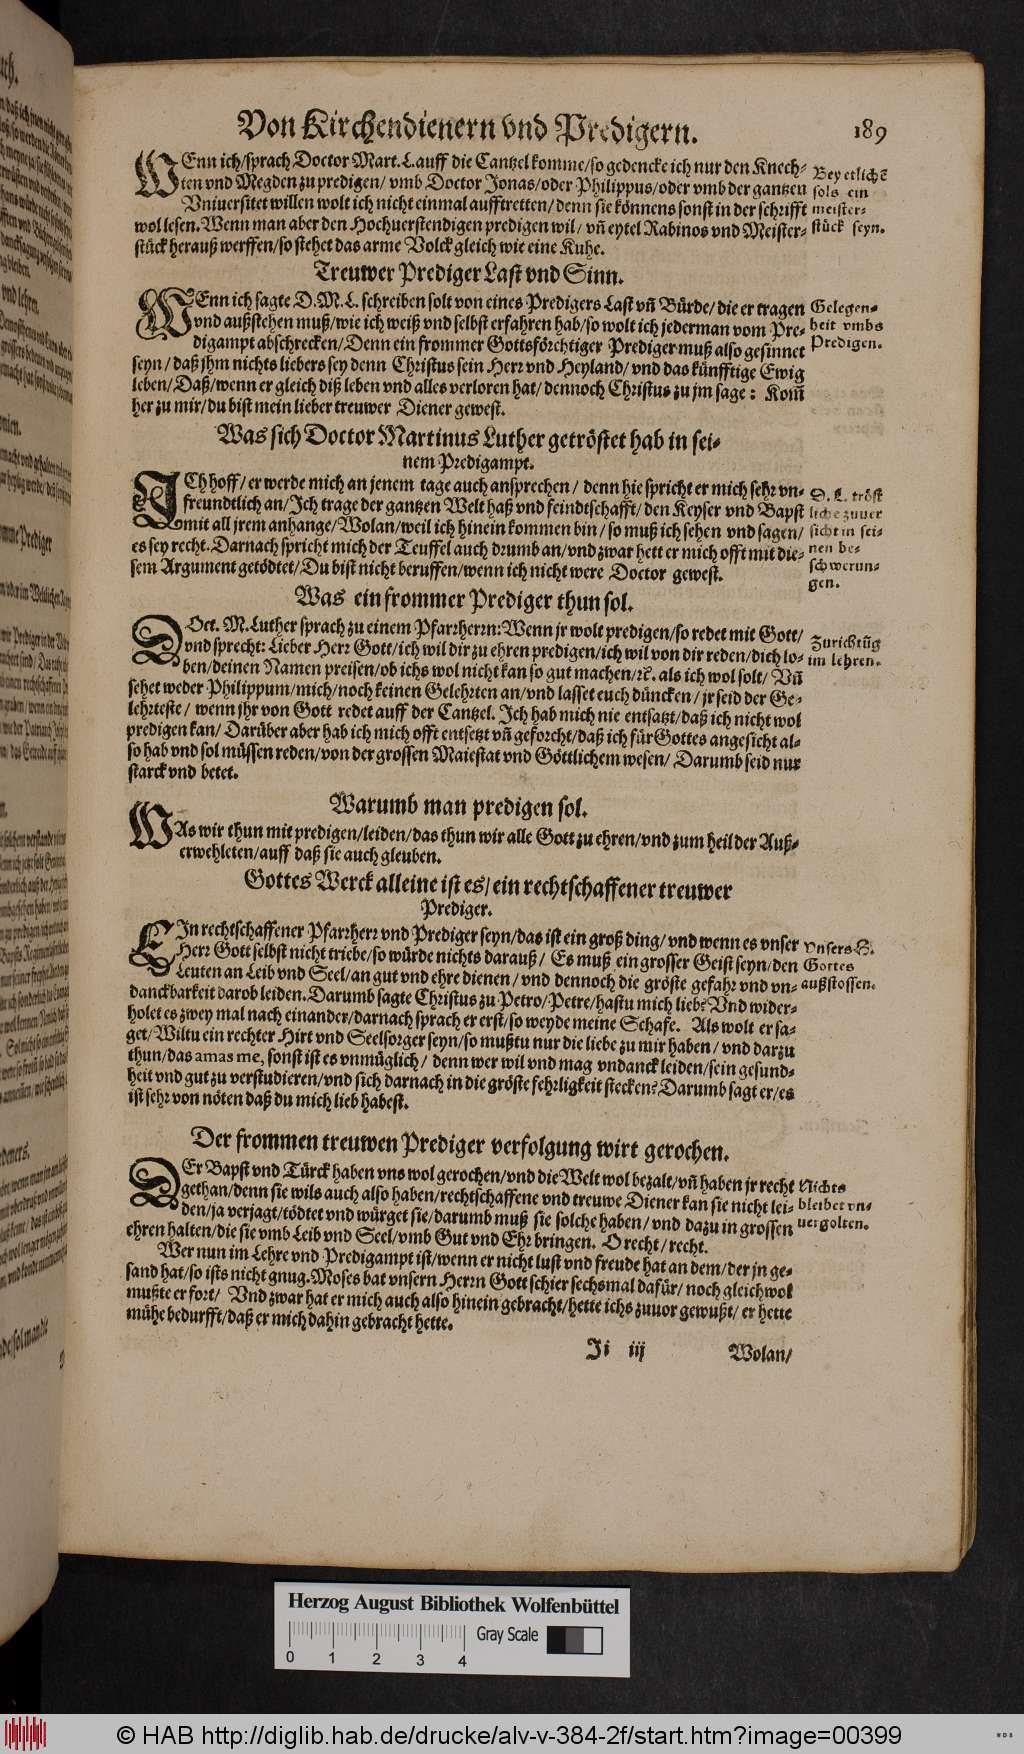 Von Kirchendienern vnd Predigern. 189
WEnn ich/sprach Doctor Mart. L. auff die Cantzel komme/so gedencke ich nur den Knech-
ten vnd Megden zu predigen/ vmb Doctor Jonas/oder Philippus/oder vmb der gantzen
Vniuersitet willen wolt ich nicht einmal aufftretten/denn sie könnens sonst in der schrifft
wol lesen. Wenn man aber den Hochuerstendigen predigen wil/ vñ eytel Rabinos vnd Meister-
stück herauß werffen/so stehet das arme Volck gleich wie eine Kuhe.
Bey etlichẽ
sols ein
meister-
stück seyn.
Treuwer Prediger Last vnd Sinn.
WEnn ich sagte D. M. L. schreiben solt von eines Predigers Last vñ Bürde/die er tragen
vnd außstehen muß/wie ich weiß vnd selbst erfahren hab/so wolt ich jederman vom Pre-
digampt abschrecken/Denn ein frommer Gottsförchtiger Prediger muß also gesinnet
seyn/daß jhm nichts liebers sey denn Christus sein Herr vnd Heyland/ vnd das künfftige Ewig
leben/Daß/wenn er gleich diß leben vnd alles verloren hat/dennoch Christus zu jm sage: Kom̃
her zu mir/du bist mein lieber treuwer Diener gewest.
Gelegen-
heit vmbs
Predigen.
Was sich Doctor Martinus Luther getröstet hab in sei-
nem Predigampt.
ICh hoff/er werde mich an jenem tage auch ansprechen/ denn hie spricht er mich sehr vn-
freundtlich an/Ich trage der gantzen Welt haß vnd feindtschafft/den Keyser vnd Bapst
mit all jrem anhange/Wolan/weil ich hinein kommen bin/so muß ich sehen vnd sagen/
es sey recht. Darnach spricht mich der Teuffel auch drumb an/vnd zwar hett er mich offt mit die-
sem Argument getödtet/Du bist nicht beruffen/wenn ich nicht were Doctor gewest.
D. L. tröst
liche zuuer
sicht in sei-
nen be-
schwerun-
gen.
Was ein frommer Prediger thun sol.
DOct. M. Luther sprach zu einem Pfarrherrn: Wenn jr wolt predigen/so redet mit Gott/
vnd sprecht: Lieber Herr Gott/ich wil dir zu ehren predigen/ich wil von dir reden/dich lo-
ben/deinen Namen preisen/ob ichs wol nicht kan so gut machen/ꝛc. als ich wol solt/ Vñ
sehet weder Philippum/mich/noch keinen Gelehrten an/vnd lasset euch düncken/jr seid der Ge-
lehrteste/ wenn jhr von Gott redet auff der Cantzel. Ich hab mich nie entsatzt/daß ich nicht wol
predigen kan/ Darüber aber hab ich mich offt entsetzt vñ geforcht/daß ich für Gottes angesicht al-
so hab vnd sol müssen reden/von der grossen Maiestat vnd Göttlichem wesen/ Darumb seid nur
starck vnd betet.
Zurichtũg
im lehren.
Warumb man predigen sol.
WAs wir thun mit predigen/leiden/das thun wir alle Gott zu ehren/vnd zum heil der Auß-
erwehleten/auff daß sie auch gleuben.
Gottes Werck alleine ist es/ein rechtschaffener treuwer
Prediger.
EIn rechtschaffener Pfarrherr vnd Prediger seyn/das ist ein groß ding/vnd wenn es vnser
Herr Gott selbst nicht triebe/so würde nichts darauß/ Es muß ein grosser Geist seyn/den
Leuten an Leib vnd Seel/an gut vnd ehre dienen/ vnd dennoch die gröste gefahr vnd vn-
danckbarkeit darob leiden. Darumb sagte Christus zu Petro/Petre/hastu mich lieb? Vnd wider-
holet es zwey mal nach einander/darnach sprach er erst/so weyde meine Schafe. Als wolt er sa-
get/Wiltu ein rechter Hirt vnd Seelsorger seyn/so mußtu nur die liebe zu mir haben/ vnd darzu
thun/das amas me, sonst ist es vnmüglich/ denn wer wil vnd mag vndanck leiden/sein gesund-
heit vnd gut zu verstudieren/vnd sich darnach in die gröste fehrligkeit stecken? Darumb sagt er/es
ist sehr von nöten daß du mich lieb habest.
Vnsers H.
Gottes
außstossen.
Der frommen treuwen Prediger verfolgung wirt gerochen.
DEr Bapst vnd Türck haben vns wol gerochen/vnd die Welt wol bezalt/vñ haben jr recht
gethan/denn sie wils auch also haben/rechtschaffene vnd treuwe Diener kan sie nicht lei-
den/ja verjagt/tödtet vnd würget sie/darumb muß sie solche haben/ vnd dazu in grossen
ehren halten/die sie vmb Leib vnd Seel/vmb Gut vnd Ehr bringen. O recht/recht.
Nichts
bleibet vn-
uergolten.
Wer nun im Lehre vnd Predigampt ist/wenn er nicht lust vnd freude hat an dem/der jn ge-
sand hat/so ists nicht gnug. Moses bat vnsern Herrn Gott schier sechsmal dafür/ noch gleichwol
mußte er fort/ Vnd zwar hat er mich auch also hinein gebracht/hette ichs zuuor gewußt/ er hette
mühe bedurfft/daß er mich dahin gebracht hette.
Ii iij Wolan/
Herzog August Bibliothek Wolfenbüttel
Gray Scale
0 1 2 3 4
© HAB http://diglib.hab.de/drucke/alv-v-384-2f/start.htm?image=00399